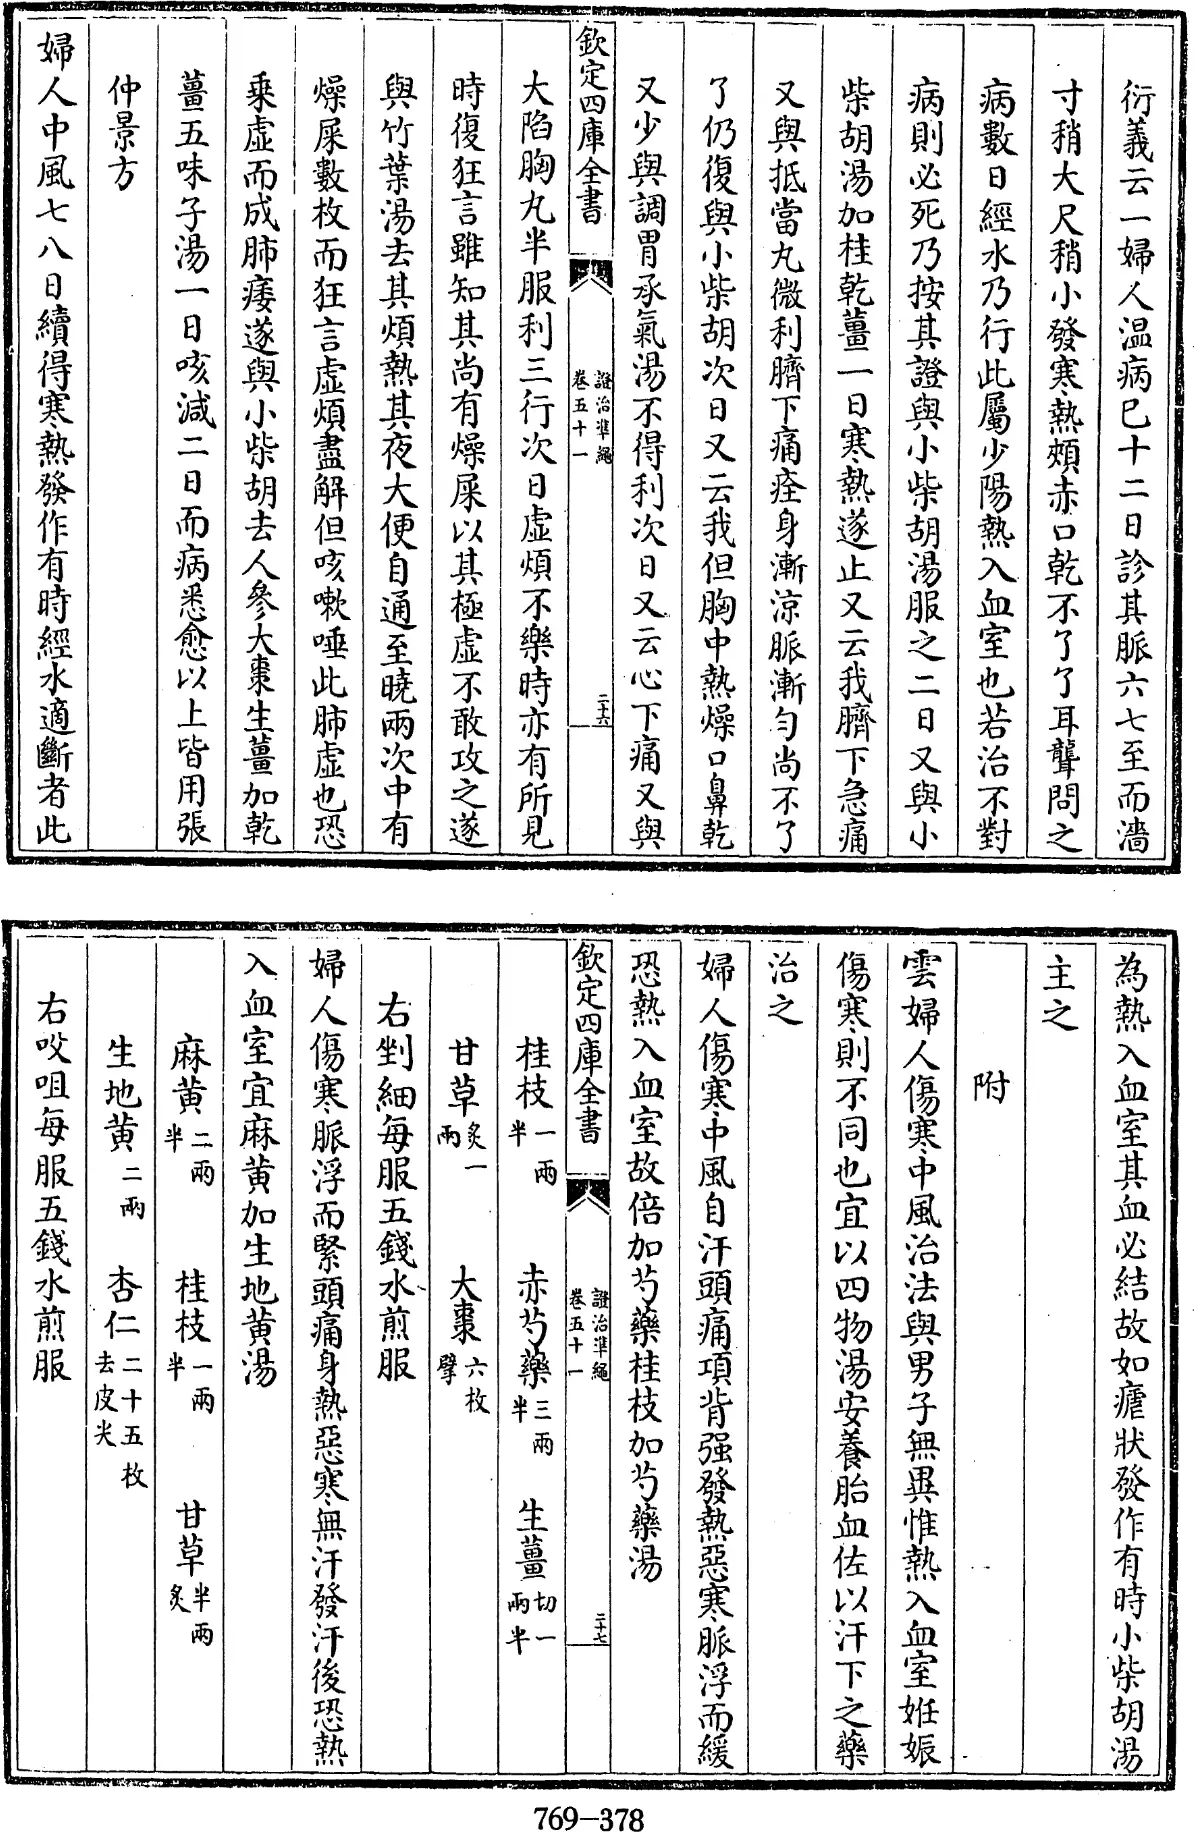 衍義云一婦人温病已十二日診其脈六七至而濇
寸稍大尺稍小發寒熱頰赤口乾不了了耳聾問之
病數日經水乃行此屬少陽熱入血室也若治不對
病則必死乃按其證與小柴胡湯服之二日又與小
柴胡湯加桂乾薑一日寒熱遂止又云我臍下急痛
又與抵當丸微利臍下痛痊身漸涼脈漸勻尚不了
了仍復與小柴胡次日又云我但胸中熱燥口鼻乾
又少與調胃承氣湯不得利次日又云心下痛又與
欽定四庫全書
證治準繩
卷五十一
二十六
大陷胸丸半服利三行次日虛煩不樂時亦有所見
時復狂言雖知其尚有燥屎以其極虛不敢攻之遂
與竹葉湯去其煩熱其夜大便自通至曉兩次中有
燥屎數枚而狂言虛煩盡解但咳嗽唾此肺虛也恐
乘虛而成肺痿遂與小柴胡去人參大棗生薑加乾
薑五味子湯一日咳減二日而病悉愈以上皆用張
仲景方
婦人中風七八日續得寒熱發作有時經水適斷者此
為熱入血室其血必結故如瘧狀發作有時小柴胡湯
主之
附
雲婦人傷寒中風治法與男子無異惟熱入血室妊娠
傷寒則不同也宜以四物湯安養胎血佐以汗下之藥
治之
婦人傷寒中風自汗頭痛項背强發熱惡寒脈浮而緩
恐熱入血室故倍加芍藥桂枝加芍藥湯
欽定四庫全書
證治準繩
卷五十一
二十七
桂枝一兩半 赤芍藥三兩半 生薑切一兩半
甘草炙一兩 大棗六枚擘
右剉細每服五錢水煎服
婦人傷寒脈浮而緊頭痛身熱惡寒無汗發汗後恐熱
入血室宜麻黄加生地黄湯
麻黄二兩半 桂枝一兩半 甘草半兩炙
生地黄二兩 杏仁二十五枚去皮尖
右㕮咀每服五錢水煎服
769-378